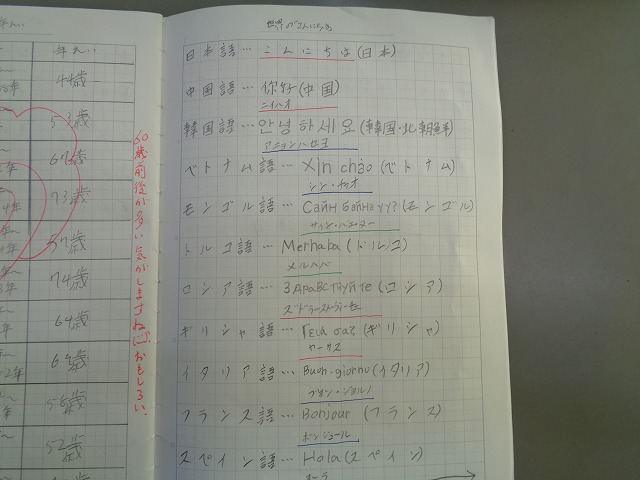 年れい
44歳
53歳
67歳
73歳
57歳
74歳
64歳
69歳
58歳
52歳
60歳前後が多い気がしますね(!)おもしろい。
世界のこんにちは
日本語…こんにちは(日本)
中国語…你好(中国)
ニイハオ
韓国語…안녕하세요(韓国・北朝鮮)
アニョンハセヨ
ベトナム語…Xin chào(ベトナム)
シン・チャオ
モンゴル語…Сайн байна уу?(モンゴル)
サィン・バエノー
トルコ語…Merhaba(トルコ)
メルハバ
ロシア語…Здравствуйте(ロシア)
ギリシャ語…Γειά σας(ギリシャ)
ヤーサス
イタリア語…Buon-giorno(イタリア)
ブオン・ジョルノ
フランス語…Bonjour(フランス)
ボンジュール
スペイン語…Hola(スペイン)
オーラ